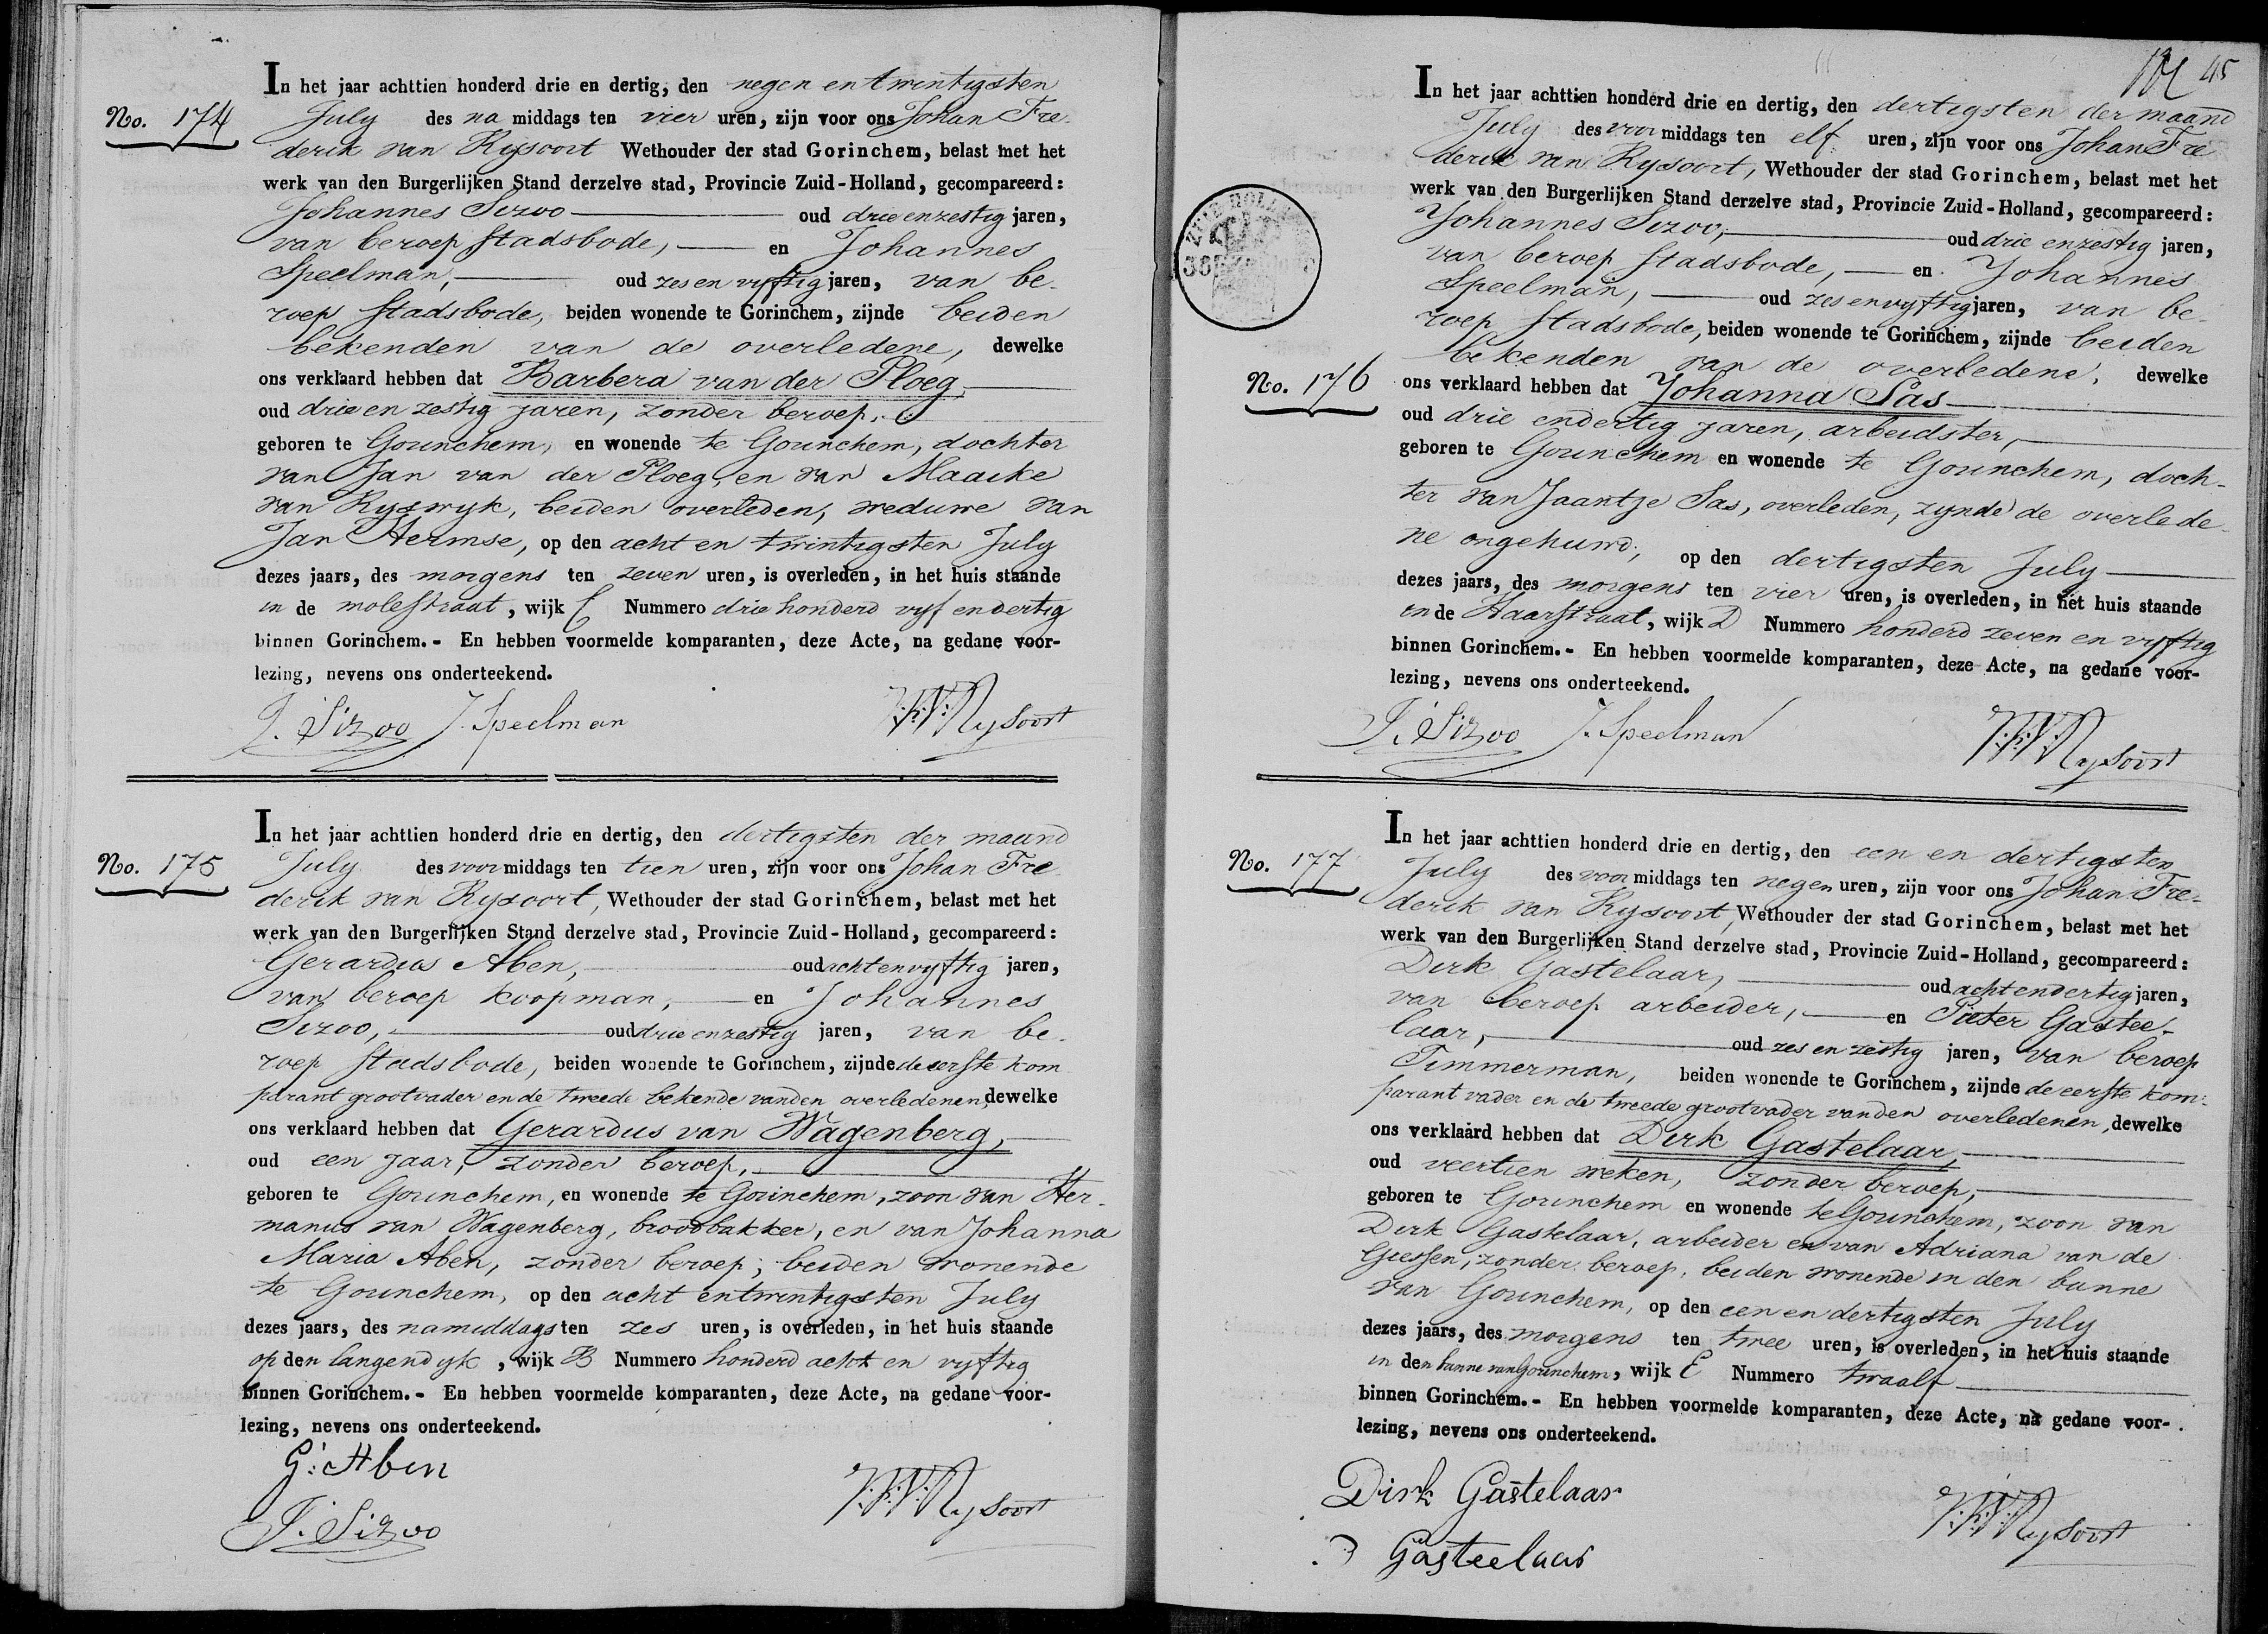 No. 174
In het jaar achttien honderd drie en dertig, den negen en twintigsten
July des na middags ten vier uren, zijn voor ons Johan Fre-
derik van Rysoort Wethouder der stad Gorinchem, belast met het
werk van den Burgerlijken Stand derzelve stad, Provincie Zuid-Holland, gecompareerd:
Johannes Sizoo oud drie en zestig jaren,
van beroep stadsbode, en Johannes
Speelman, oud zes en vyftig jaren, van be-
roep stadsbode, beiden wonende te Gorinchem, zijnde beiden
bekenden van de overledene, dewelke
ons verklaard hebben dat Barbera van der Ploeg,
oud drie en zestig jaren, zonder beroep,
geboren te Gorinchem, en wonende te Gorinchem, dochter
van Jan van der Ploeg, en van Maaike
van Ryswyk, beiden overleden, weduwe van
Jan Hermse, op den acht en twintigsten July
dezes jaars, des morgens ten zeven uren, is overleden, in het huis staande
in de molestraat, wijk C Nummero drie honderd vyf en dertig
binnen Gorinchem.- En hebben voormelde komparanten, deze Acte, na gedane voor-
lezing, nevens ons onderteekend.
J. Sizoo J. Speelman J.F.V. Rysoort
No. 175
In het jaar achttien honderd drie en dertig, den dertigsten der maand
July des voor middags ten tien uren, zijn voor ons Johan Fre
derik van Rysoort, Wethouder der stad Gorinchem, belast met het
werk van den Burgerlijken Stand derzelve stad, Provincie Zuid-Holland, gecompareerd:
Gerardus Aben, oud acht en vyftig jaren,
van beroep koopman, en Johannes
Sizoo, oud drie en zestig jaren, van be-
roep stadsbode, beiden wonende te Gorinchem, zijnde de eerste kom
parant grootvader en de tweede bekende van den overledenen, dewelke
ons verklaard hebben dat Gerardus van Wagenberg,
oud een jaar, zonder beroep,
geboren te Gorinchem, en wonende te Gorinchem, zoon van Her-
manus van Wagenberg, broodbakker, en van Johanna
Maria Aben, zonder beroep; beiden wonende
te Gorinchem, op den acht en twintigsten July
dezes jaars, des namiddags ten zes uren, is overleden, in het huis staande
op den langendyk, wijk B Nummero honderd acht en vyftig
binnen Gorinchem.- En hebben voormelde komparanten, deze Acte, na gedane voor-
lezing, nevens ons onderteekend.
G: Aben
J. Sizoo J.F.V. Rysoort
45
ZUID HOLLAND
No. 176
In het jaar achttien honderd drie en dertig, den dertigsten der maand
July des voor middags ten elf uren, zijn voor ons Johan Fre
derik van Rysoort, Wethouder der stad Gorinchem, belast met het
werk van den Burgerlijken Stand derzelve stad, Provincie Zuid-Holland, gecompareerd:
Johannes Sizoo, oud drie en zestig jaren,
van beroep stadsbode, en Johannes
Speelman, oud zes en vyftig jaren, van be-
roep stadsbode, beiden wonende te Gorinchem, zijnde beiden
bekenden van de overledene, dewelke
ons verklaard hebben dat Johanna Sas
oud drie en dertig jaren, arbeidster,
geboren te Gorinchem en wonende te Gorinchem, doch-
ter van Jaantje Sas, overleden, zynde de overlede-
ne ongehuwd, op den dertigsten July
dezes jaars, des morgens ten vier uren, is overleden, in het huis staande
in de Haarstraat, wijk D Nummero honderd zeven en vyftig
binnen Gorinchem.- En hebben voormelde komparanten, deze Acte, na gedane voor-
lezing, nevens ons onderteekend.
J. Sizoo J. Speelman J.F.V. Rysoort
No. 177
In het jaar achttien honderd drie en dertig, den een en dertigsten
July des voor middags ten negen uren, zijn voor ons Johan Fre-
derik van Rysoort, Wethouder der stad Gorinchem, belast met het
werk van den Burgerlijken Stand derzelve stad, Provincie Zuid-Holland, gecompareerd:
Dirk Gastelaar, oud acht en dertig jaren,
van beroep arbeider, en Pieter Gastee-
laar, oud zes en zestig jaren, van beroep
Timmerman, beiden wonende te Gorinchem, zijnde de eerste kom-
parant vader en de tweede grootvader van den overledenen, dewelke
ons verklaard hebben dat Dirk Gastelaar,
oud veertien weken, zonder beroep,
geboren te Gorinchem en wonende te Gorinchem, zoon van
Dirk Gastelaar, arbeider en van Adriana van de
Giessen, zonder beroep, beiden wonende in den banne
van Gorinchem, op den een en dertigsten July
dezes jaars, des morgens ten twee uren, is overleden, in het huis staande
in den banne van Gorinchem, wijk E Nummero twaalf
binnen Gorinchem.- En hebben voormelde komparanten, deze Acte, na gedane voor-
lezing, nevens ons onderteekend.
Dirk Gastelaar
P Gasteelaar J.F.V. Rysoort